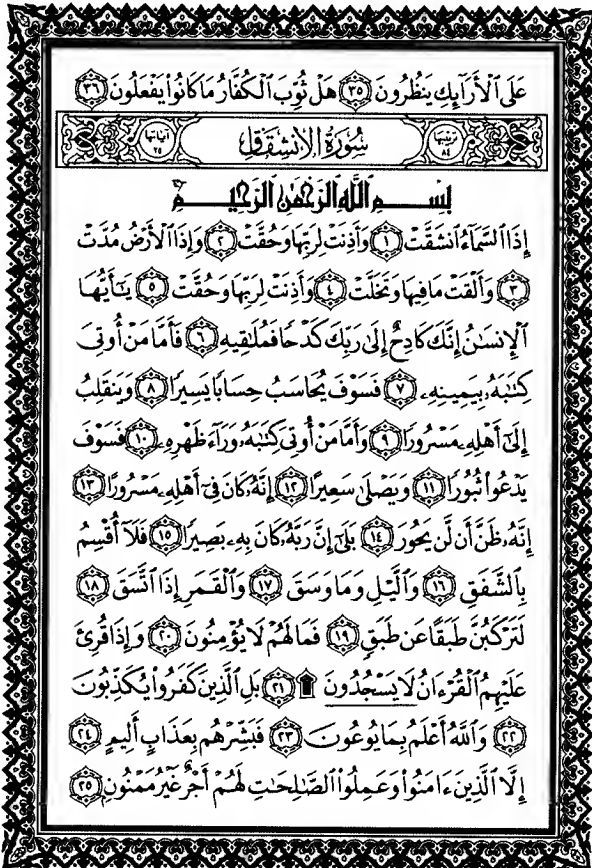 عَلَى ٱلْأَرَآئِكِ يَنظُرُونَ ٣٥ هَلْ ثُوِّبَ ٱلْكُفَّارُ مَا كَانُوا۟ يَفْعَلُونَ ٣٦
ترتيبها ٨٤ سُورَةُ الانْشِقَاقِ آياتها ٢٥
بِسْمِ ٱللَّهِ ٱلرَّحْمَٰنِ ٱلرَّحِيمِ
إِذَا ٱلسَّمَآءُ ٱنشَقَّتْ ١ وَأَذِنَتْ لِرَبِّهَا وَحُقَّتْ ٢ وَإِذَا ٱلْأَرْضُ مُدَّتْ
٣ وَأَلْقَتْ مَا فِيهَا وَتَخَلَّتْ ٤ وَأَذِنَتْ لِرَبِّهَا وَحُقَّتْ ٥ يَٰٓأَيُّهَا
ٱلْإِنسَٰنُ إِنَّكَ كَادِحٌ إِلَىٰ رَبِّكَ كَدْحًا فَمُلَٰقِيهِ ٦ فَأَمَّا مَنْ أُوتِىَ
كِتَٰبَهُۥ بِيَمِينِهِۦ ٧ فَسَوْفَ يُحَاسَبُ حِسَابًا يَسِيرًا ٨ وَيَنقَلِبُ
إِلَىٰٓ أَهْلِهِۦ مَسْرُورًا ٩ وَأَمَّا مَنْ أُوتِىَ كِتَٰبَهُۥ وَرَآءَ ظَهْرِهِۦ ١٠ فَسَوْفَ
يَدْعُوا۟ ثُبُورًا ١١ وَيَصْلَىٰ سَعِيرًا ١٢ إِنَّهُۥ كَانَ فِىٓ أَهْلِهِۦ مَسْرُورًا ١٣
إِنَّهُۥ ظَنَّ أَن لَّن يَحُورَ ١٤ بَلَىٰٓ إِنَّ رَبَّهُۥ كَانَ بِهِۦ بَصِيرًا ١٥ فَلَآ أُقْسِمُ
بِٱلشَّفَقِ ١٦ وَٱلَّيْلِ وَمَا وَسَقَ ١٧ وَٱلْقَمَرِ إِذَا ٱتَّسَقَ ١٨
لَتَرْكَبُنَّ طَبَقًا عَن طَبَقٍ ١٩ فَمَا لَهُمْ لَا يُؤْمِنُونَ ٢٠ وَإِذَا قُرِئَ
عَلَيْهِمُ ٱلْقُرْءَانُ لَا يَسْجُدُونَ ۩ ٢١ بَلِ ٱلَّذِينَ كَفَرُوا۟ يُكَذِّبُونَ
٢٢ وَٱللَّهُ أَعْلَمُ بِمَا يُوعُونَ ٢٣ فَبَشِّرْهُم بِعَذَابٍ أَلِيمٍ ٢٤
إِلَّا ٱلَّذِينَ ءَامَنُوا۟ وَعَمِلُوا۟ ٱلصَّٰلِحَٰتِ لَهُمْ أَجْرٌ غَيْرُ مَمْنُونٍۭ ٢٥